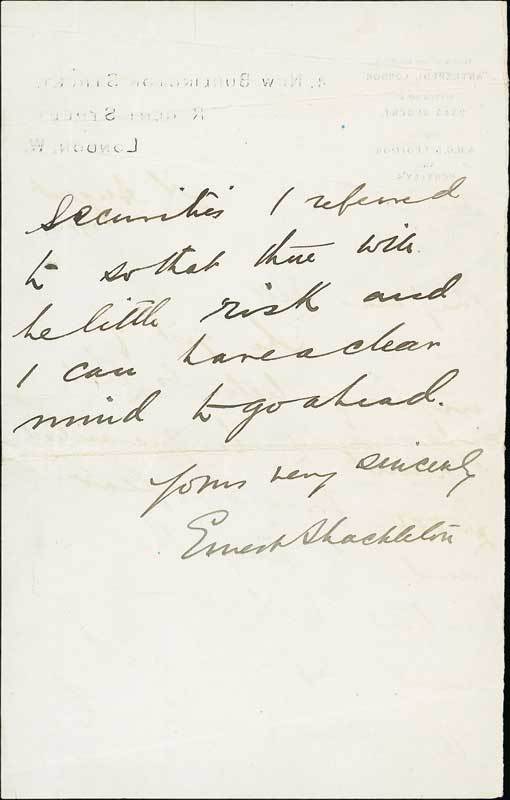 4, NEW BURLINGTON STREET,
REGENT STREET,
LONDON, W.
securities I referred
to so that there will
be little risk and
I can have a clear
mind to go ahead.
Yours very sincerely
Ernest Shackleton